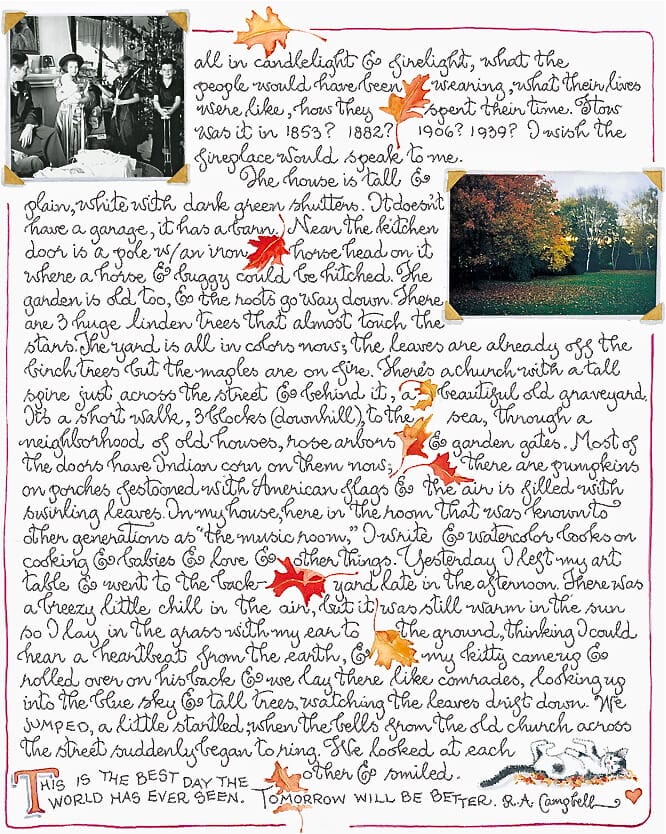 all in candlelight & firelight, what the
people would have been wearing, what their lives
were like, how they spent their time. How
was it in 1853? 1882? 1906? 1939? I wish the
fireplace would speak to me.
The house is tall &
plain, white with dark green shutters. It doesn't
have a garage, it has a barn. Near the kitchen
door is a pole w/an iron horse head on it
where a horse & buggy could be hitched. The
garden is old too, & the roots go way down. There
are 3 huge linden trees that almost touch the
stars. The yard is all in colors now; the leaves are already off the
birch trees but the maples are on fire. There's a church with a tall
spire just across the street & behind it, a beautiful old graveyard.
It's a short walk, 3 blocks (downhill), to the sea, through a
neighborhood of old houses, rose arbors & garden gates. Most of
the doors have Indian corn on them now; there are pumpkins
on porches festooned with American flags & the air is filled with
swirling leaves. In my house, here in the room that was known to
other generations as "the music room," I write & watercolor books on
cooking & babies & love & other things. Yesterday I left my art
table & went to the back yard late in the afternoon. There was
a breezy little chill in the air, but it was still warm in the sun
so I lay in the grass with my ear to the ground, thinking I could
hear a heartbeat from the earth, & my kitty came up &
rolled over on his back & we lay there like comrades, looking up
into the blue sky & tall trees, watching the leaves drift down. We
JUMPED, a little startled, when the bells from the old church across
the street suddenly began to ring. We looked at each
other & smiled.
THIS IS THE BEST DAY THE
WORLD HAS EVER SEEN. TOMORROW WILL BE BETTER. R.A. Campbell